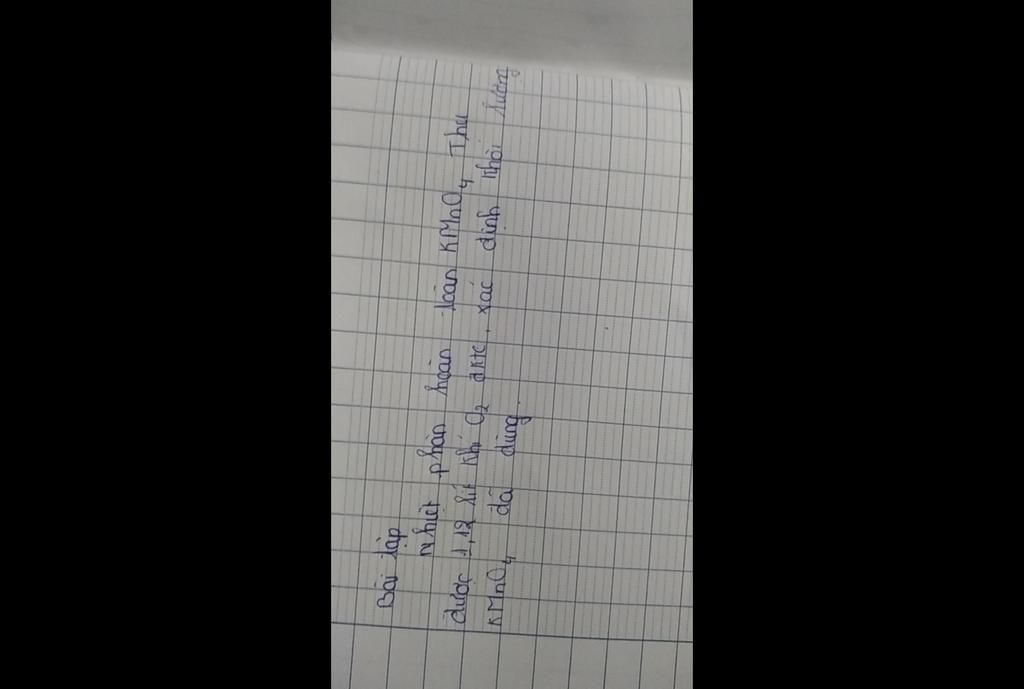 Bài tập
nhiệt phân hoàn toàn KMnO4 Thu
được 1,12 lít khí O2 đktc, xác định khối lượng
KMnO4 đã dùng.